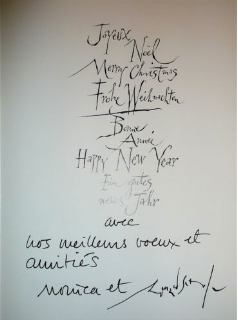 Joyeux
Noël
Merry Christmas
Frohe Weihnachten
Bonne
Année
Happy New Year
Ein gutes
neues Jahr
avec
nos meilleurs voeux et
amitiés
Monica et